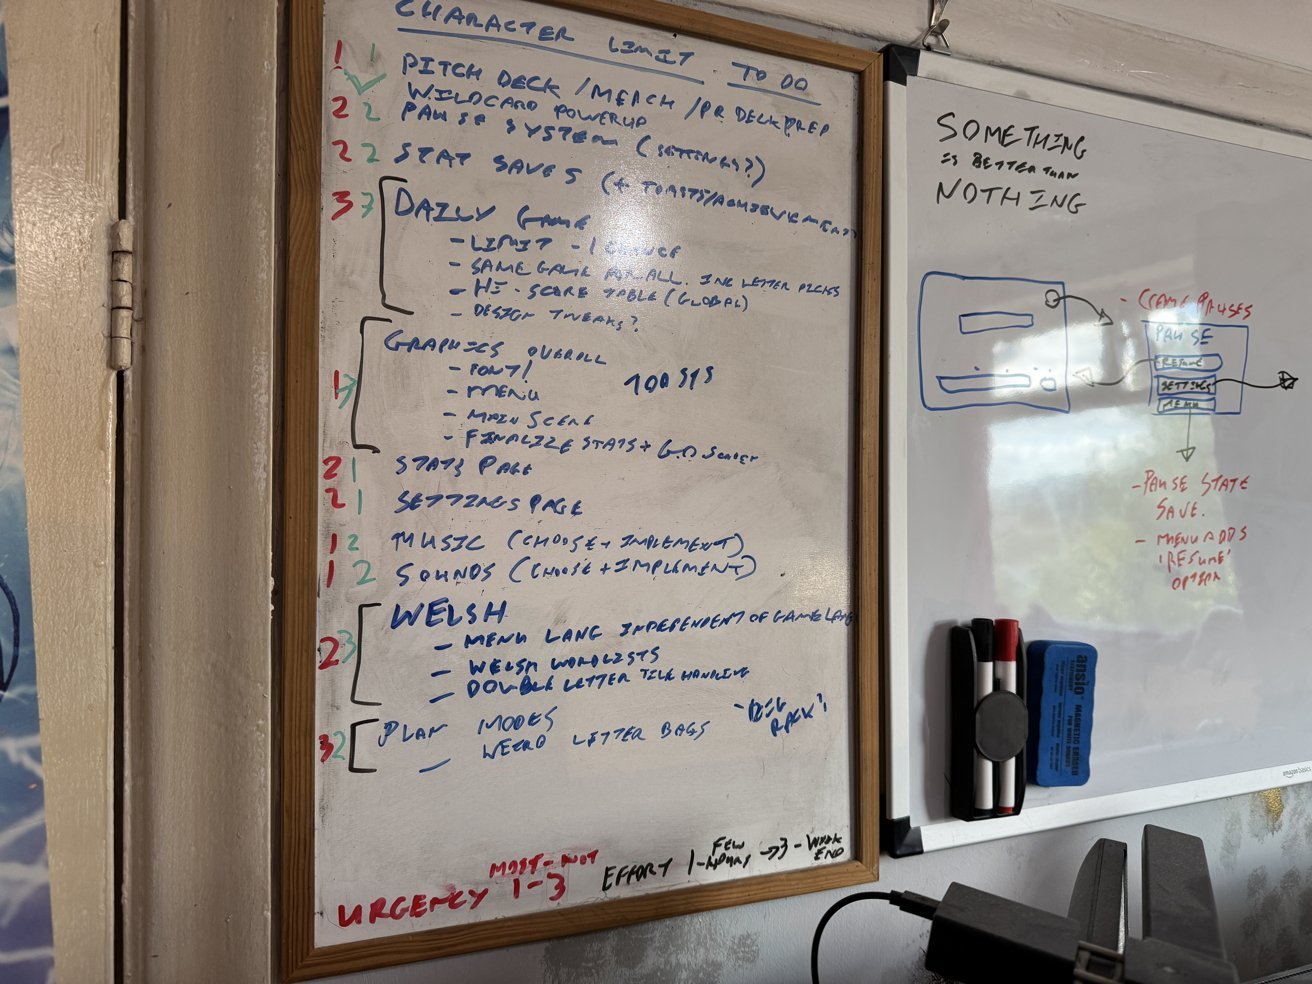 CHARACTER LIMIT TO DO
1 1 PITCH DECK / MERCH / PR DECK PREP
WILDCARD POWERUP
2 2 PAUSE SYSTEM (SETTINGS?)
2 2 STAT SAVES (+ TOASTS/ACHIEVEMENTS
3 DAILY GAME
- LIMIT - 1 CHANCE
- SAME GAME FOR ALL. INC LETTER PICKS
- HI-SCORE TABLE (GLOBAL)
- DESIGN TWEAKS?
1 GRAPHICS
- FONT!
- MENU
- MAIN SCENE
- FINALIZE STATS + G.O SCREEN
2 1 STATS PAGE
2 1 SETTINGS PAGE
1 2 MUSIC (CHOOSE + IMPLEMENT)
1 2 SOUNDS (CHOOSE + IMPLEMENT)
2 3 WELSH
- MENU LANG INDEPENDENT OF GAME LANG
- WELSH WORDLISTS
- DOUBLE LETTER TILE HANDLING
3 2 PLAN MODES
- WEIRD LETTER BAGS
URGENCY MOST - NOT 1-3
EFFORT 1 - FEW HOURS → 3 - WEEK END
SOMETHING
IS BETTER THAN
NOTHING
- GAME PAUSES
PAUSE
RESUME
SETTINGS
MENU
- PAUSE STATE
SAVE.
- MENU ADDS
'RESUME'
OPTION
ansio
MAGNETIC ERASER
FOR WHITE BOARDS
amazon basics